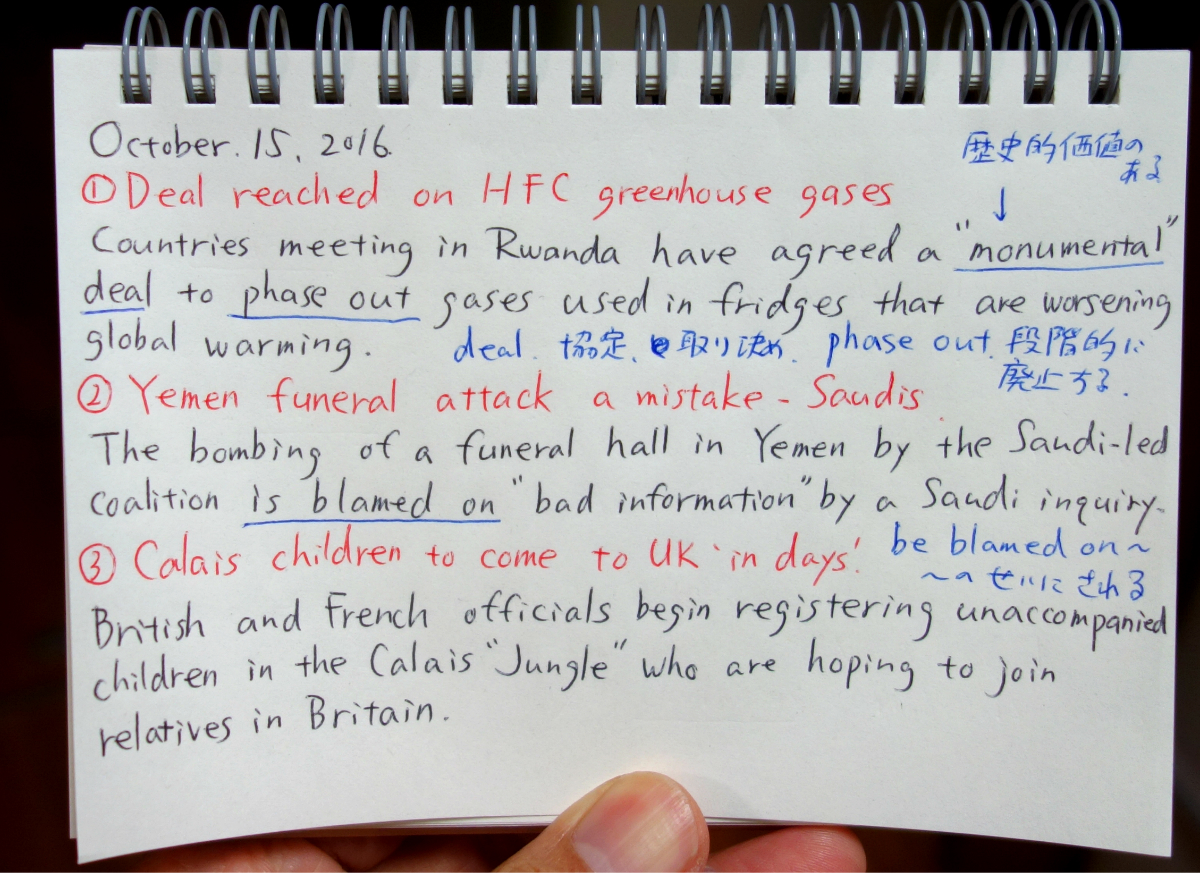 October. 15, 2016.
歴史的価値の
ある
↓
①Deal reached on HFC greenhouse gases
Countries meeting in Rwanda have agreed a "monumental"
deal to phase out gases used in fridges that are worsening
global warming.
deal. 協定、取り決め. phase out. 段階的に
廃止する.
② Yemen funeral attack a mistake - Saudis
The bombing of a funeral hall in Yemen by the Saudi-led
coalition is blamed on "bad information" by a Saudi inquiry.
③ Calais children to come to UK 'in days'.
be blamed on ~
~のせいにされる
British and French officials begin registering unaccompanied
children in the Calais "Jungle" who are hoping to join
relatives in Britain.